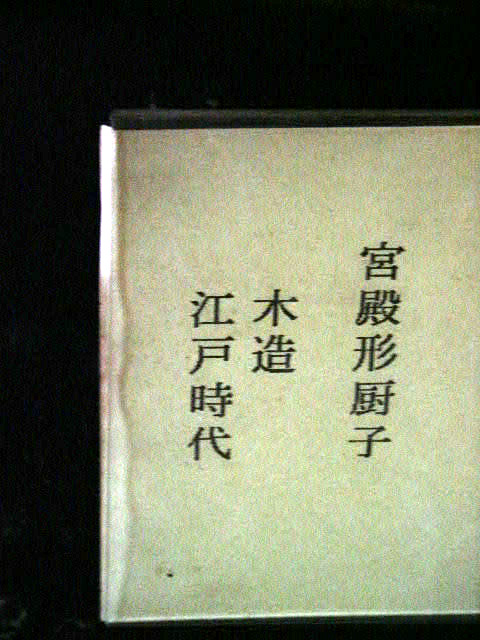 宮殿形厨子
木造
江戸時代